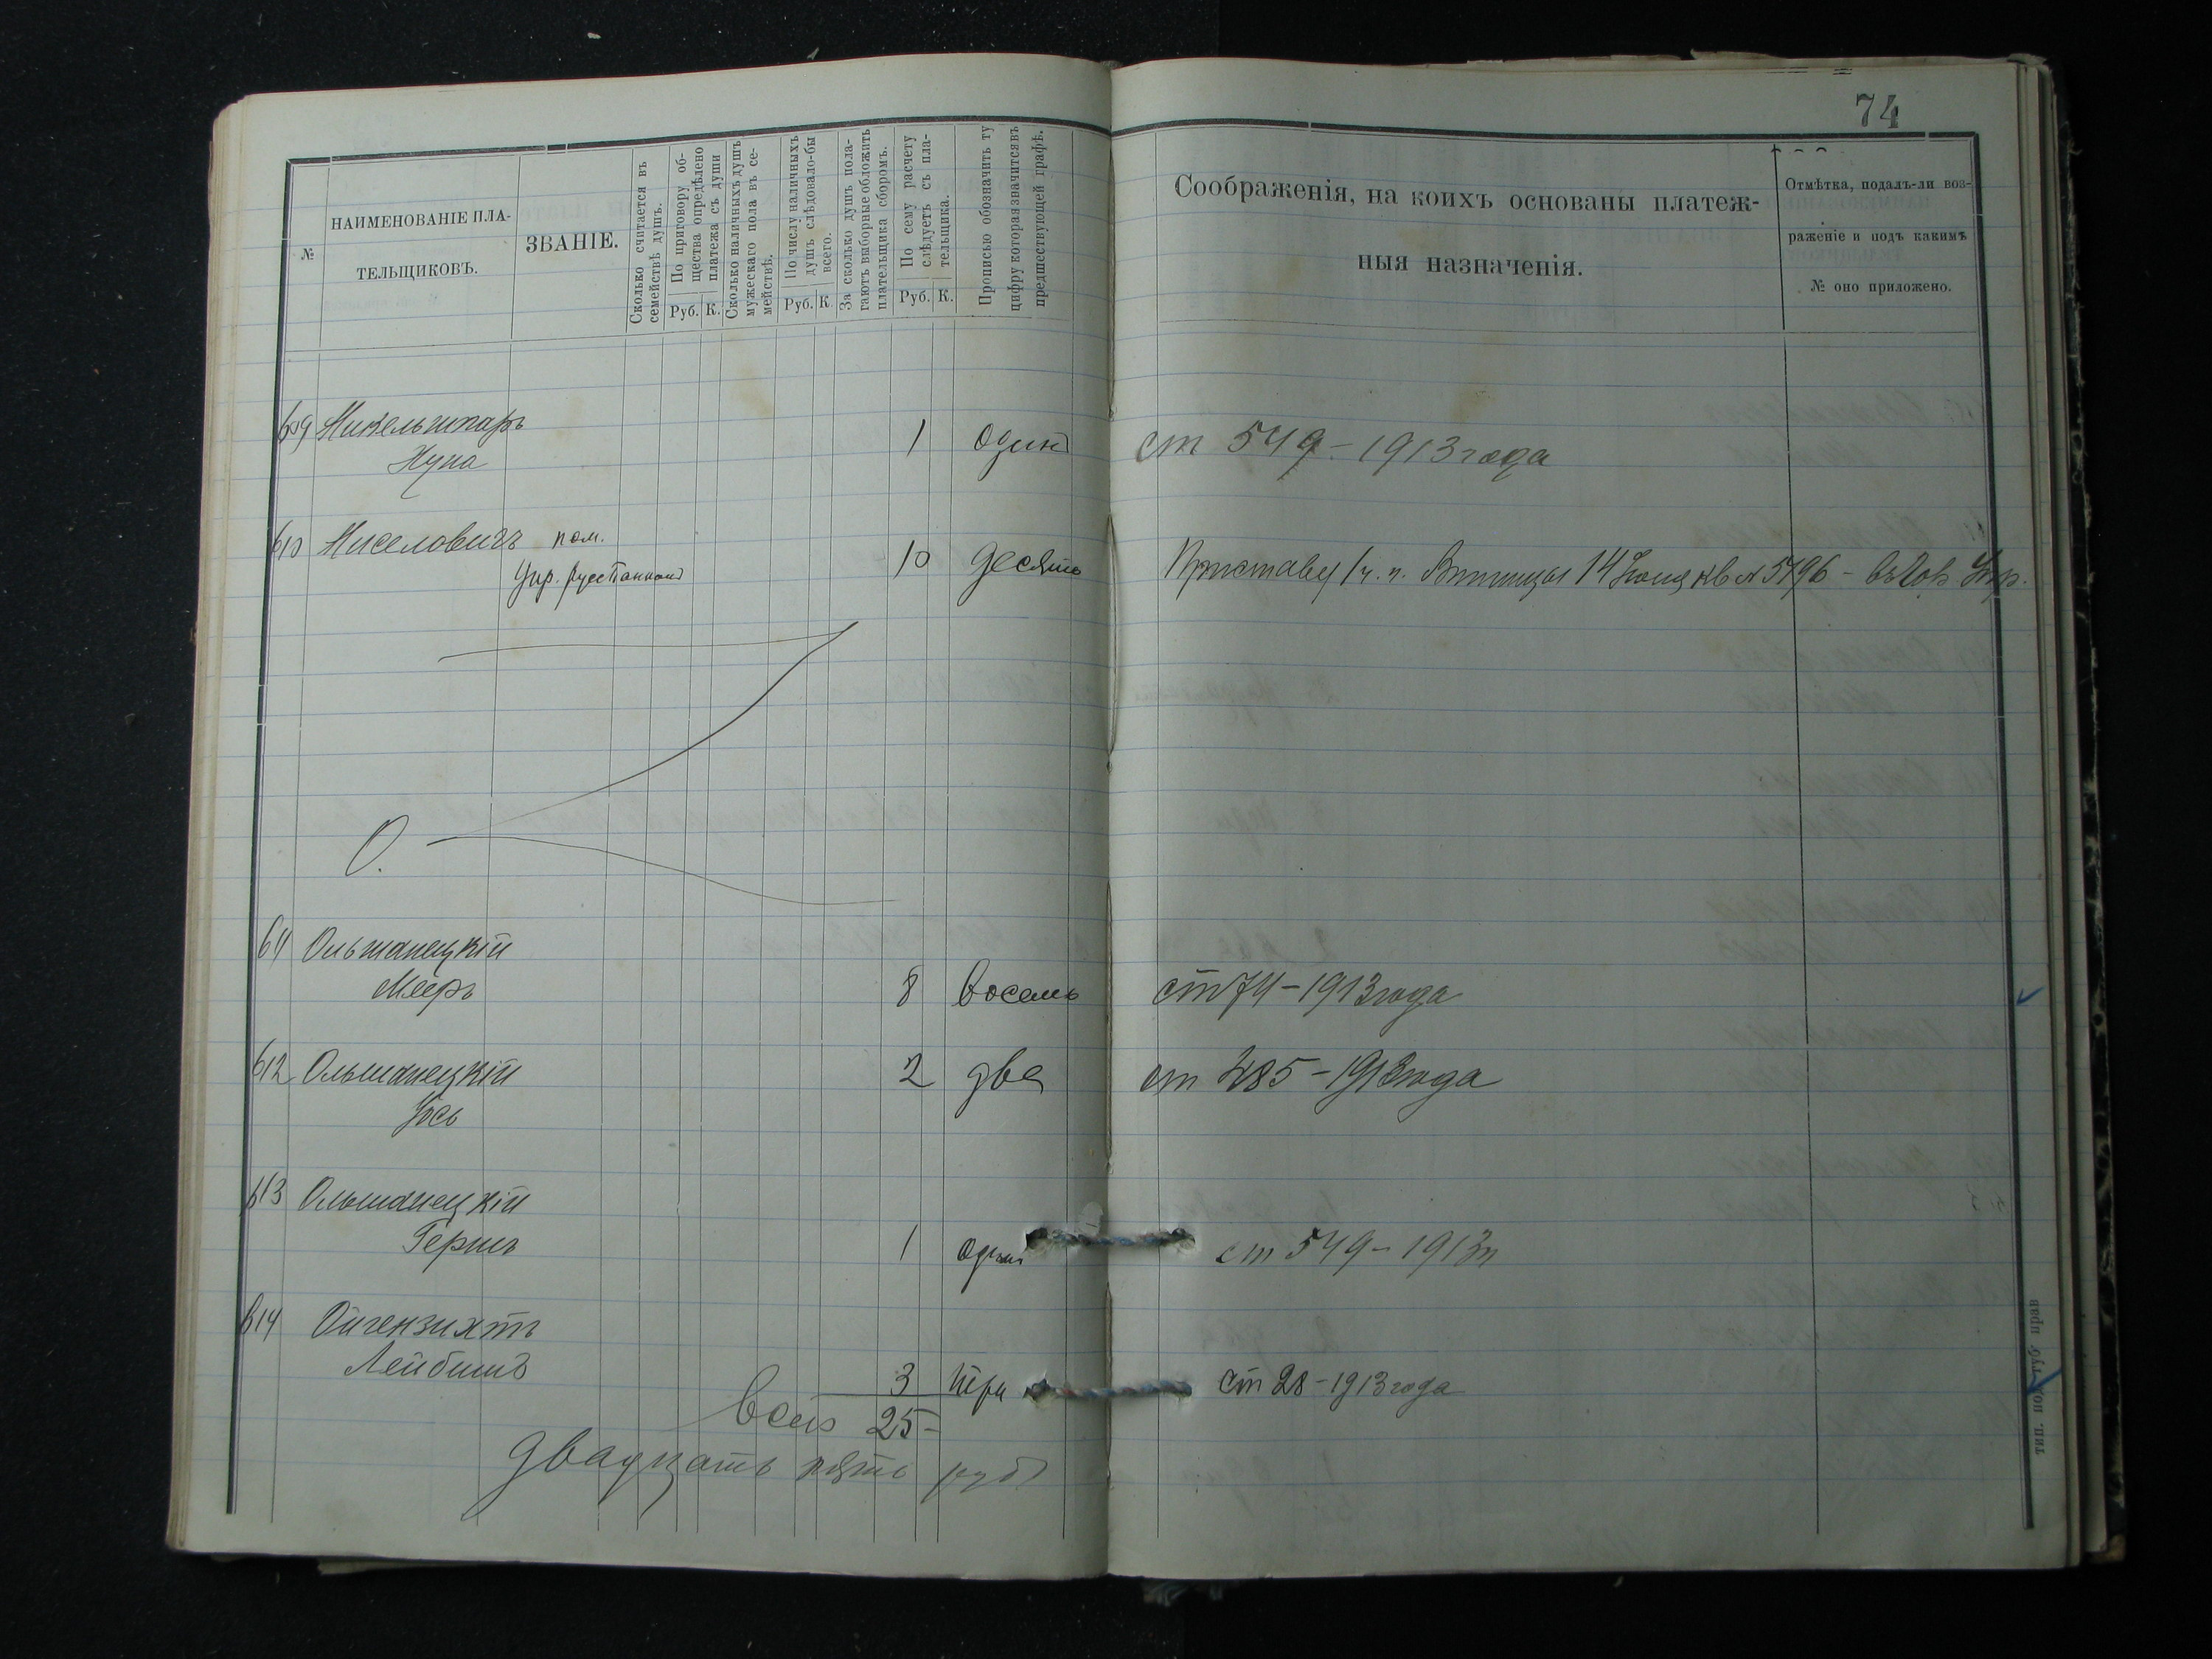 74
№
НАИМЕНОВАНІЕ ПЛА-
ТЕЛЬЩИКОВЪ.
ЗВАНІЕ.
Сколько считается въ
семействѣ душъ.
По приговору об-
щества опредѣлено
платежа съ души
Руб. К.
Сколько наличныхъ душъ
мужескаго пола въ се-
мействѣ.
По числу наличныхъ
душъ слѣдовало-бы
всего.
Руб. К.
За сколько душъ пола-
гаютъ выборные обложить
плательщика сборомъ.
По сему расчету
слѣдуетъ съ пла-
тельщика.
Руб. К.
Прописью обозначить ту
цифру которая значится въ
предшествующей графѣ.
Соображенія, на коихъ основаны платеж-
ныя назначенія.
Отмѣтка, подалъ-ли воз-
раженіе и подъ какимъ
№ оно приложено.
609 Никельшпаръ
Нуна 1 один ст 549 - 1913 года
610 Ниселовичъ пом.
Упр. 10 десять Приставу 1 ч. г. Винницы 14 кв № 5796 - Упр.
О.
611 Ольшанецкій
Мееръ 8 восемь ст 74 - 1913 года
612 Ольшанецкій 2 два ст 285 - 1913 года
Іось
613 Ольшанецкій
Гершъ 1 один ст 549 - 1913 г
614 Ойгензихтъ
Лейбишъ 3 три ст 28 - 1913 года
Всего 25 -
Двадцать пять руб
тип. под губ прав